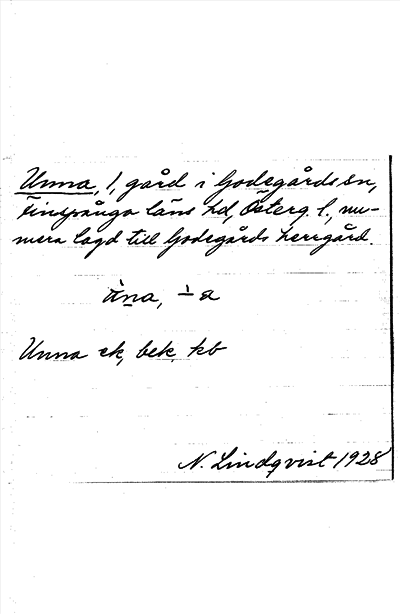 Unna, 1, gård i Godegårds sn,
Finspånga läns hd, Österg. l., nu-
mera lagd till Godegårds herrgård.
Unna ek, bek, kb
N. Lindqvist 1928